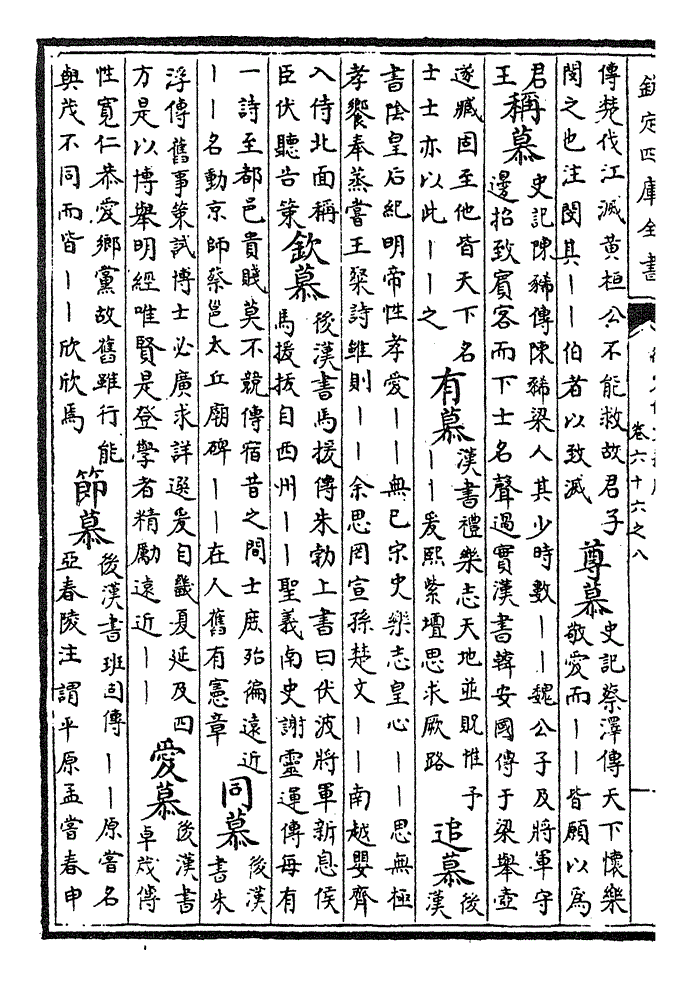 欽定四庫全書
卷六十六之八
傳楚伐江滅黃桓公不能救故君子
閔之也注閔其――伯者以致滅
尊慕
史記蔡澤傳天下懷樂
敬愛而――皆願以為
君
王
稱慕
史記陳豨傳陳豨梁人其少時數――魏公子及將軍守
邊招致賓客而下士名聲過實漢書韓安國傳于梁舉壺
遂臧固至他皆天下名
士士亦以此――之
有慕
漢書禮樂志天地並貺惟予
――爰熙紫壇思求厥路
追慕
後
漢
書陰皇后紀明帝性孝愛――無已宋史樂志皇心――思無極
孝饗奉蒸嘗王粲詩雖則――余思罔宣孫楚文――南越嬰齊
入侍北面稱
臣伏聽告策
欽慕
後漢書馬援傳朱勃上書曰伏波將軍新息侯
馬援拔自西州――聖義南史謝靈運傳每有
一詩至都邑貴賤莫不競傳宿昔之間士庶殆徧遠近
――名動京師蔡邕太丘廟碑――在人舊有憲章
同慕
後漢
書朱
浮傳舊事策試博士必廣求詳選爰自畿夏延及四
方是以博舉明經唯賢是登學者精勵遠近――
愛慕
後漢書
卓茂傳
性寬仁恭愛鄉黨故舊雖行能
與茂不同而皆――欣欣焉
節慕
後漢書班固傳――原嘗名
亞春陵注謂平原孟嘗春申